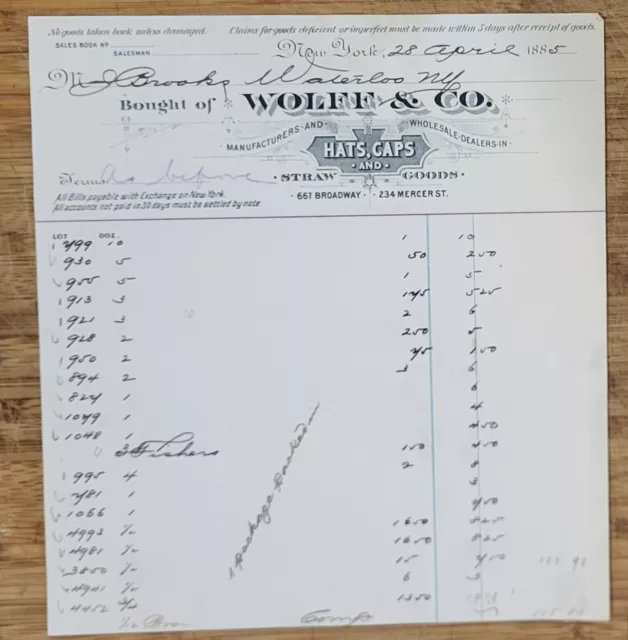 No goods taken back unless damaged. Claims for goods deficient or imperfect must be made within 5 days after receipt of goods.
SALES BOOK Nº
SALESMAN
New York, 28 April 1885
M J Brooks Waterloo NY
Bought of WOLFF & CO.
MANUFACTURERS-AND- WHOLESALE-DEALERS-IN-
HATS, CAPS
-AND-
STRAW GOODS
Terms As before
• 661 BROADWAY • - 234 MERCER ST.
All Bills payable with Exchange on New York.
All accounts not paid in 30 days must be settled by note.
LOT DOZ.
499 10 1 10
930 5 50 2 50
955 5 1 5
1913 3 1 75 5 25
1921 3 2 6
928 2 2 50 5
1950 2 75 1 50
894 2 3 6
824 1 6
1049 1 4
1048 1 4 50
3 Fishers 1 50 4 50
995 4 2 8
781 1 6
1066 1 4 50
4993 1/2 16 50 8 25
4981 1/2 16 50 8 25
3850 1/2 15 7 50
4941 1/2 6 3
4452 13 50
1 package packed in